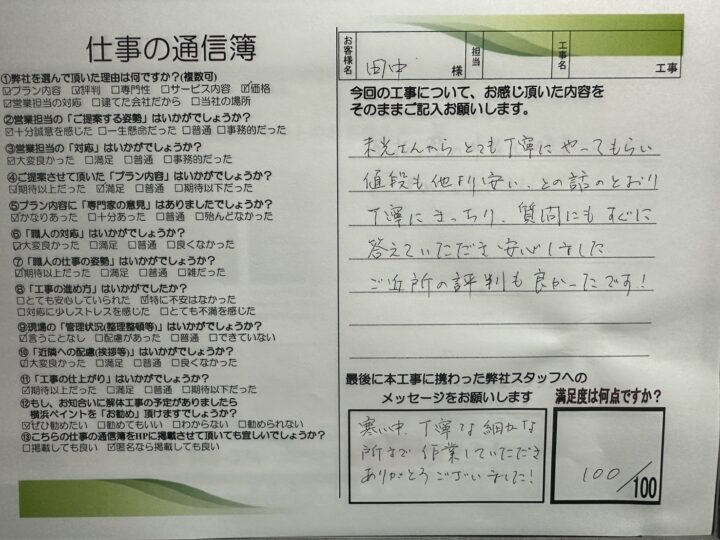 仕事の通信簿
①弊社を選んで頂いた理由は何ですか?(複数可)
☑プラン内容 ☑評判 □専門性 □サービス内容 ☑価格
☑営業担当の対応 □建てた会社だから □当社の場所
②営業担当の「ご提案する姿勢」はいかがでしょうか?
☑十分誠意を感じた □一生懸命だった □普通 □事務的だった
③営業担当の「対応」はいかがでしょうか?
☑大変良かった □満足 □普通 □事務的だった
④ご提案させて頂いた「プラン内容」はいかがでしょうか?
☑期待以上だった ☑満足 □普通 □期待以下だった
⑤プラン内容に「専門家の意見」はありましたでしょうか?
☑かなりあった □十分あった □普通 □殆んどなかった
⑥「職人の対応」はいかがでしょうか?
☑大変良かった □満足 □普通 □良くなかった
⑦「職人の仕事の姿勢」はいかがでしょうか?
☑期待以上だった □満足 □普通 □雑だった
⑧「工事の進め方」はいかがでしたか?
□とても安心していられた ☑特に不安はなかった
□対応に少しストレスを感じた □とても不満を感じた
⑨現場の「管理状況(整理整頓等)」はいかがでしょうか?
☑言うことなし □配慮があった □普通 □できていない
⑩「近隣への配慮(挨拶等)」はいかがでしょうか?
☑大変良かった □満足 □普通 □良くなかった
⑪「工事の仕上がり」はいかがでしょうか?
☑期待以上だった □満足 □普通 □期待以下だった
⑫もし、お知合いに解体工事の予定がありましたら
横浜ペイントを「お勧め」頂けますでしょうか?
☑ぜひ勧めたい □勧めてもいい □わからない □勧められない
⑬こちらの仕事の通信簿をHPに掲載させて頂いても宜しいでしょうか?
□掲載しても良い ☑匿名なら掲載しても良い
お客様名 田中 様 担当 工事名 工事
今回の工事について、お感じ頂いた内容を
そのままご記入お願いします。
末光さんから とても丁寧に やってもらい
値段も他より安い、との話のとおり
丁寧にきっちり、質問にもすぐに
答えていただき安心しました
ご近所の評判も良かったです!
最後に本工事に携わった弊社スタッフへの
メッセージをお願いします
寒い中、丁寧な細かな
所まで 作業していただき
ありがとうございました!
満足度は何点ですか?
100/100